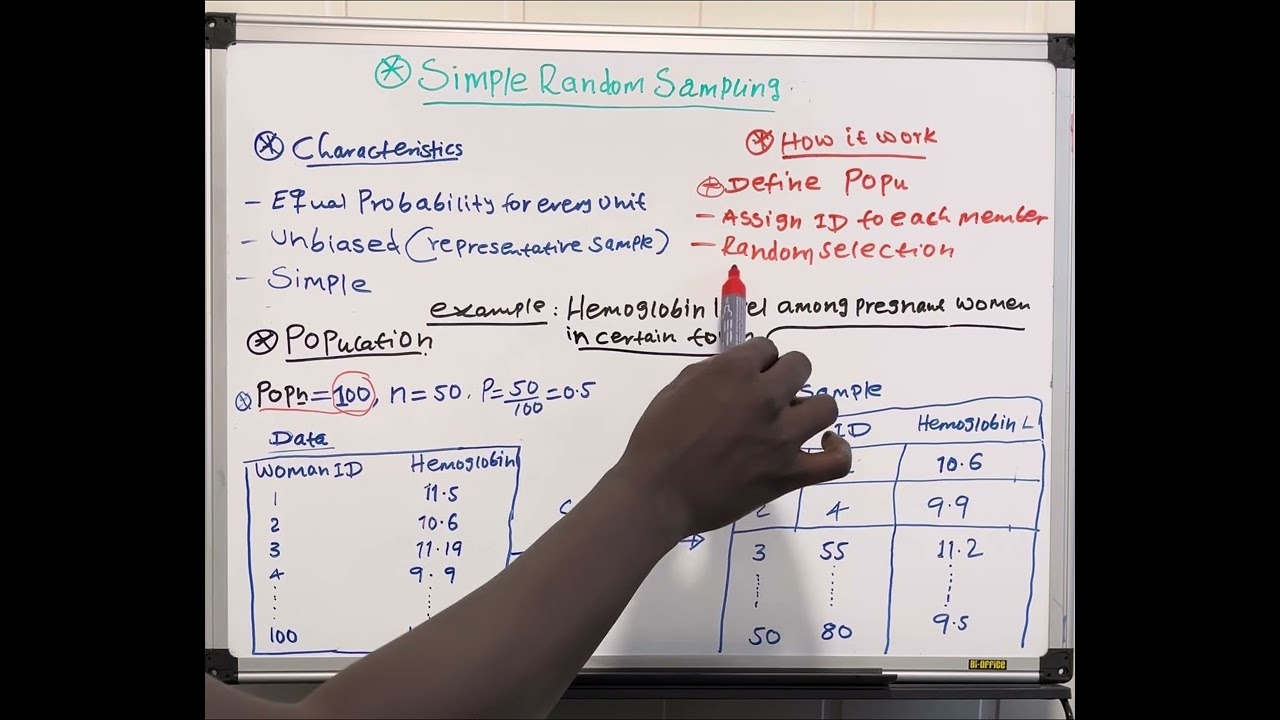 Simple Random Sampling.
Characteristics
- Equal Probability for every unit
- Unbiased (representative sample)
- Simple
How it work
Define Popu
- Assign ID to each member
- Random selection
example: Hemoglobin among pregnant women
in certain
Population
Popn = 100, n = 50. P = 50/100 = 0.5
Data
Woman ID Hemoglobin
1 11.5
2 10.6
3 11.19
4 9.9
100
Sample
ID Hemoglobin L
10.6
2 4 9.9
3 55 11.2
50 80 9.5
Bi-OFFICE